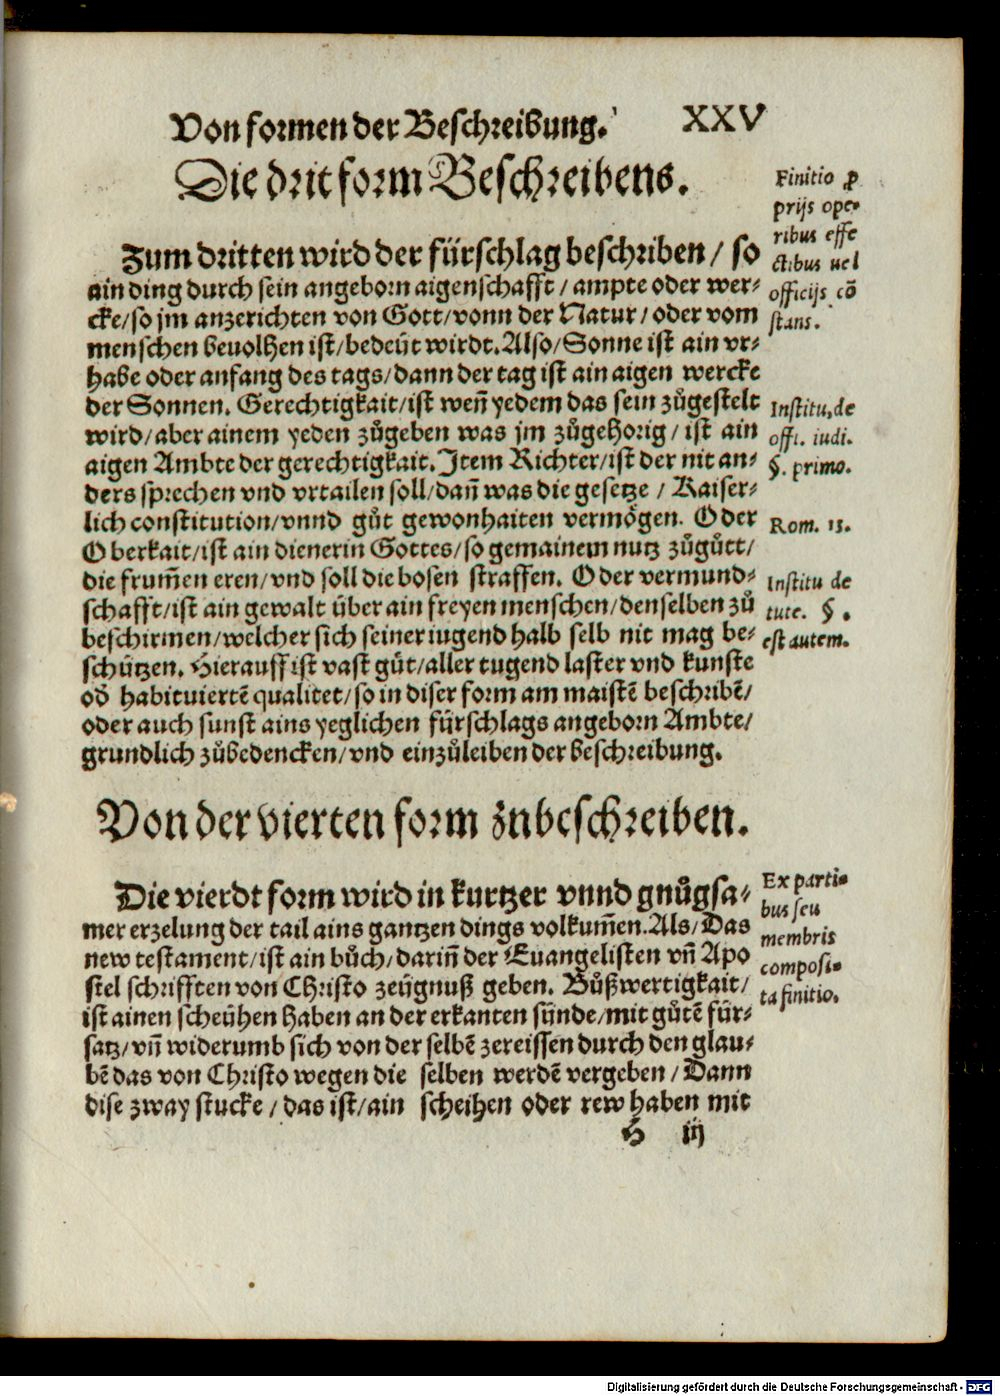 Von formen der Beschreibung. XXV
Die drit form Beschreibens.
Zum dritten wird der fürschlag beschriben / so
ain ding durch sein angeborn aigenschafft / ampte oder wer⸗
cke/so jm anzerichten von Gott/vonn der Natur/oder vom
menschen beuolhen ist/bedeüt wirdt. Also/Sonne ist ain vr⸗
habe oder anfang des tags/dann der tag ist ain aigen wercke
der Sonnen. Gerechtigkait/ist weñ yedem das sein zůgestelt
wird/aber ainem yeden zůgeben was jm zůgehorig/ist ain
aigen Ambte der gerechtigkait. Item Richter/ist der nit an⸗
ders sprechen vnd vrtailen soll/dañ was die gesetze / Kaiser⸗
lich constitution/vnnd gůt gewonhaiten vermögen. Oder
Oberkait/ist ain dienerin Gottes/so gemainem nutz zůgůtt/
die frum̃en eren/vnd soll die bosen straffen. Oder vermund⸗
schafft/ist ain gewalt über ain freyen menschen/denselben zů
beschirmen/welcher sich seiner iugend halb selb nit mag be⸗
schützen. Hierauff ist vast gůt/aller tugend laster vnd kunste
od̃ habituiertẽ qualitet/so in diser form am maistẽ beschribẽ/
oder auch sunst ains yeglichen fürschlags angeborn Ambte/
grundlich zůbedencken/vnd einzůleiben der beschreibung.
Finitio ꝓ
prijs ope⸗
ribus effe
ctibus uel
officijs cõ
stans.
Institu. de
offi. iudi.
§. primo.
Rom. 13.
Institu de
tute. §.
est autem.
Von der vierten form znbeschreiben.
Die vierdt form wird in kurtzer vnnd gnůgsa⸗
mer erzelung der tail ains gantzen dings volkum̃en. Als/Das
new testament/ist ain bůch/dariñ der Euangelisten vñ Apo
stel schrifften von Christo zeügnuß geben. Bůßwertigkait/
ist ainen scheühen haben an der erkanten sünde/mit gůtẽ für⸗
satz/vñ widerumb sich von der selbẽ zereissen durch den glau⸗
bẽ das von Christo wegen die selben werdẽ vergeben / Dann
dise zway stucke / das ist/ain scheihen oder rew haben mit
H iij
Ex parti⸗
bus seu
membris
composi⸗
ta finitio.
Digitalisierung gefördert durch die Deutsche Forschungsgemeinschaft - DFG